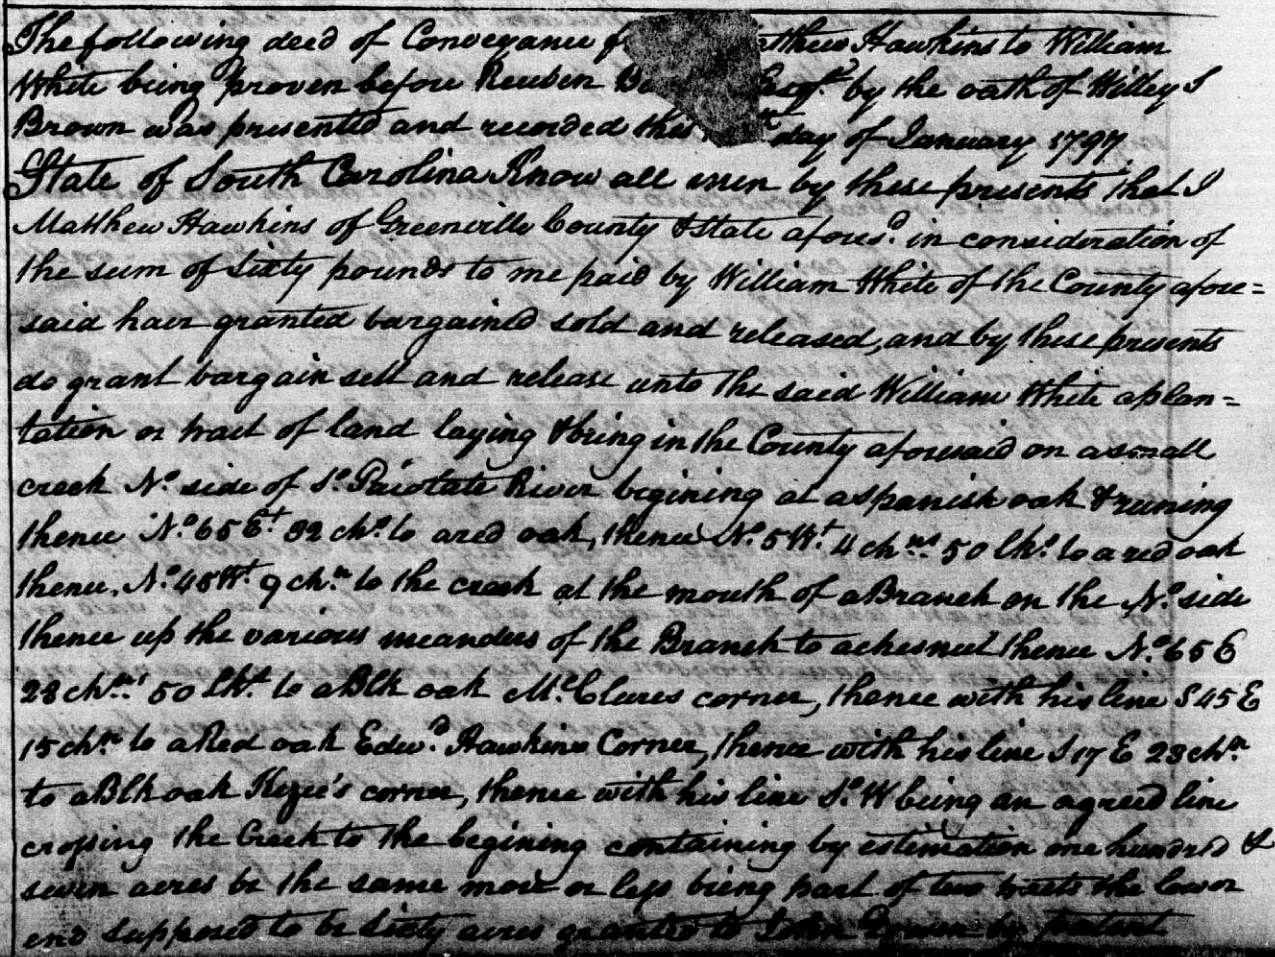 The following deed of Conveyance f atthew Hawkins to William
White being proven before Reuben Ba Esqr. by the oath of Willey S
Brown was presented and recorded this day of January 1797
State of South Carolina Know all men by these presents that I
Matthew Hawkins of Greenville County & State afouesd. in consideration of
the sum of sixty pounds to me paid by William White of the County afore=
said have granted bargained sold and released, and by these presents
do grant bargain sell and release unto the said William White a plan=
tation or tract of land laying & being in the County aforesaid on a small
creek No. side of So. Paiotate River begining at a spanish oak & runing
thence No. 65 Et 32 chs. to a red oak, thence No. 5 Wt. 4 chns. 50 lks. to a red oak
thence, No. 45 Wt. 9 chn. to the creek at the mouth of a Branch on the No. side
thence up the various meanders of the Branch to a chesnut thence No. 65 E
28 chns. 50 lks. to a Blk oak McClures corner, thence with his line S 45 E
15 chn. to a Red oak Edwd. Hawkins Corner, thence with his line S 17 E 23 chn.
to a Blk oak Kezee's corner, thence with his line So. W being an agreed line
crossing the Creek to the begining containing by estimation one hundred &
seven acres be the same more or less being part of two tracts the lower
end supposed to be sixty acres granted to John Gowen by patent